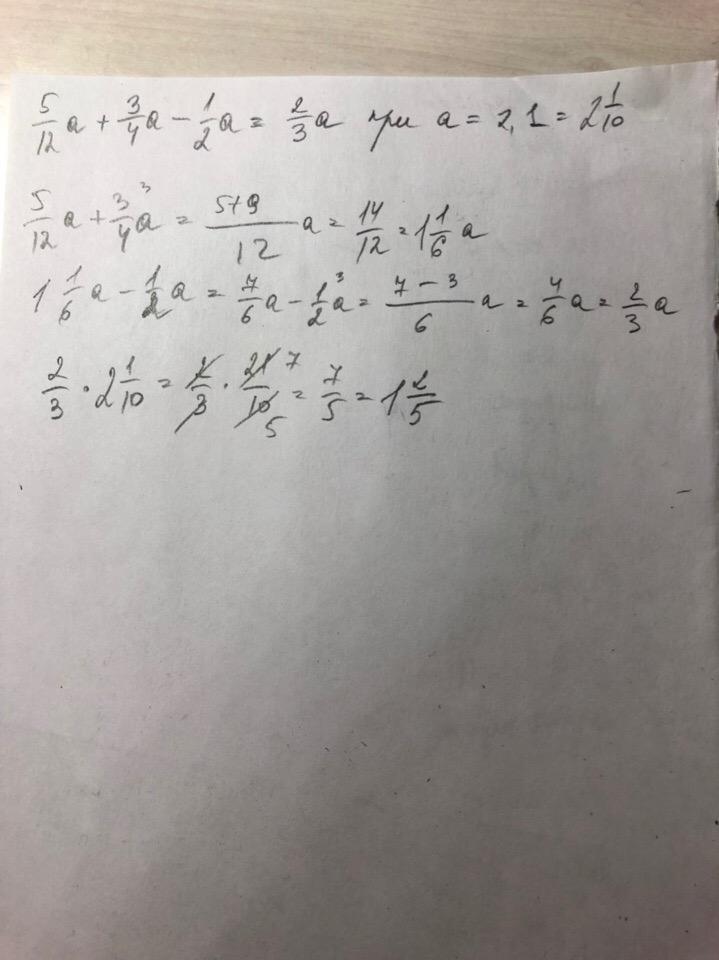 5/12 a + 3/4 a - 1/2 a = 2/3 a при a = 2,1 = 2 1/10
5/12 a + 3/4 ³ a = 5+9/12 a = 14/12 = 1 1/6 a
1 1/6 a - 1/2 a = 7/6 a - 1/2 ³ a = 7-3/6 a = 4/6 a = 2/3 a
2/3 · 2 1/10 = 2/3 · 21/10 7 5 = 7/5 = 1 2/5